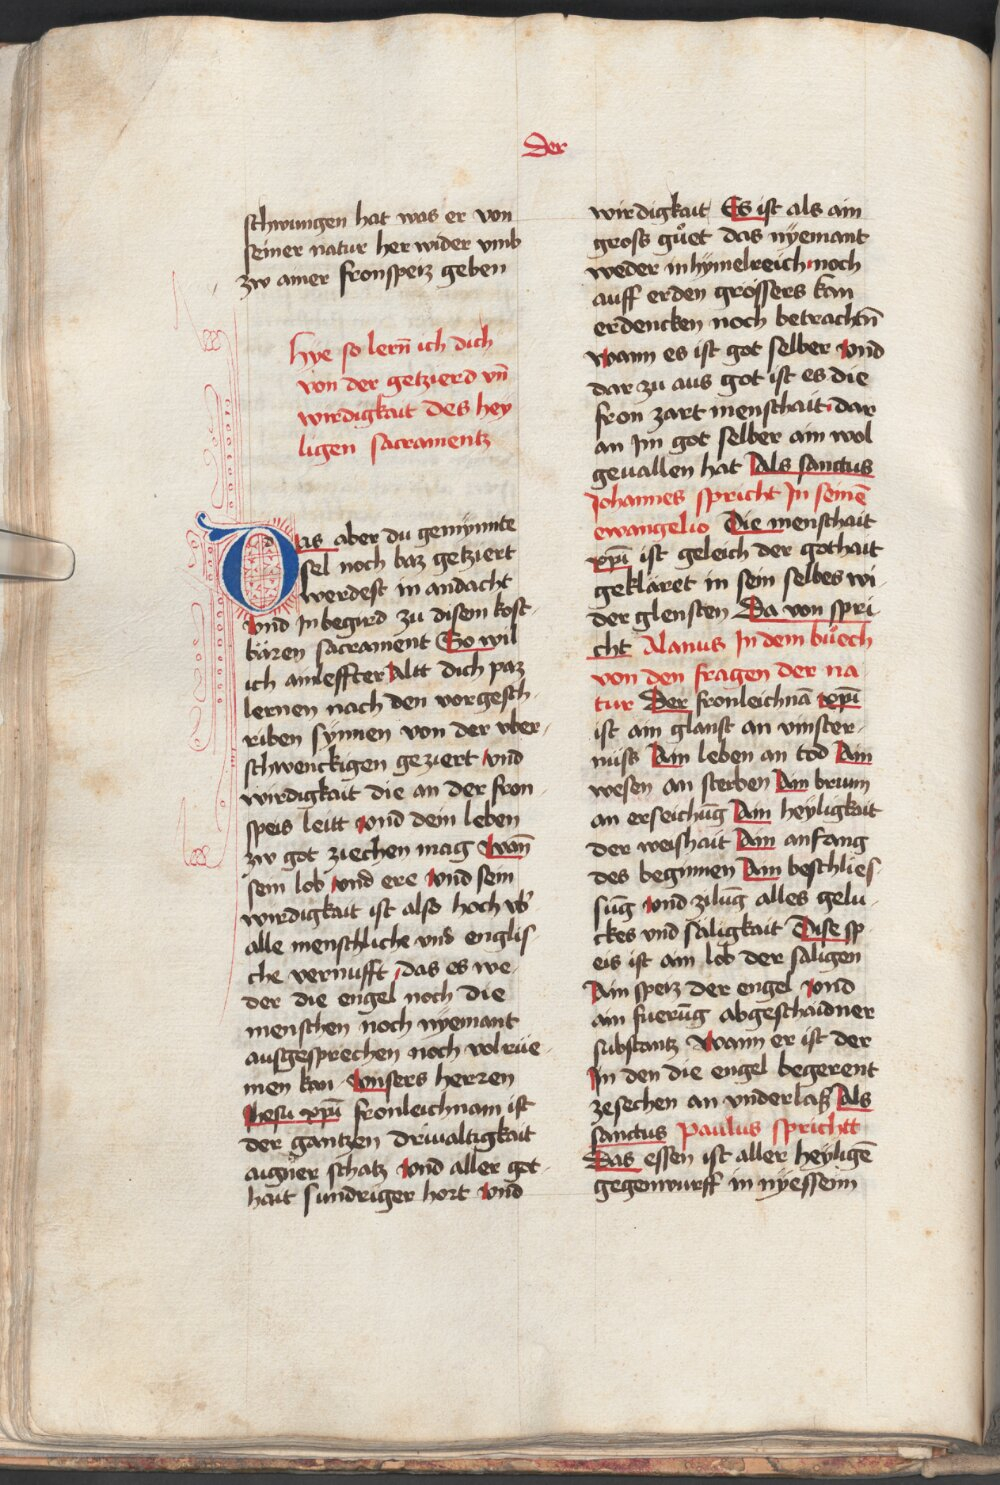 Der
schwungen hat was er von
seiner natur her wider vmb
zw ainer fronspeiz geben
Hye so lern̄ ich dich
von der getzierd vn̄
wirdigkait des hey
ligen sacramentz
Das aber du gemynnte
sel noch baz getziert
werdest in andacht
Vnd Jnbegird zu disem kost-
bären sacrament So wil
ich ainleffter Altt dich paz
lernen nach den vorgesch-
riben synnen von der vber-
schwenckigen geziert vnd
wirdigkait die an der fron-
speis leitt vnd dein leben
zw got ziechen mag Wan̄
sein lob vnd ere vnd sein
wirdigkait ist also hoch vb̕
alle menschliche vnd englis-
che vernufft das es we-
der die engel noch die
menschen noch nyemant
ausgesprechen noch volrüe-
men kan Vnsers herren
Jhesu xpi̅ fronleichnam ist
der gantzen driualtigkait
augner schatz vnd aller got-
hait sundriger hort vnd
wirdigkait Es ist als ain
gross guͦet das nÿemant
weder inhymelreich noch
auff erden grössers kan
erdencken noch betrachtn̄
wann es ist got selber vnd
dar zu aus got ist es die
fron zart menschait dar
an Jm got selber ain wol
geuallen hat Als sanctus
Johannes spricht Jn seinē
ewangelio Die menschait
xpi̅ ist geleich der gothait
gekläret in sein selbes wi-
der glensten Da von spri
cht Alanus Jn dem buͦech
von den fragen der na
tur Der fronleichnā xpi̅
ist ain glanst an vinster-
nüss Ain leben an tod Ain
wesen an sterben Ain brunn
an erseichūg Ain heyligkait
der weishait Ain anfang
des beginnen Ain beschlies-
sūg vnd zilūg alles gelu-
ckes vnd säligkait Dise sp-
eis ist ain lob der saligen
Ain speiz der engel vnd
ain fuerūg abgeschaidner
substantz Wann er ist der
Jn den die engel begerent
zesechen an vnderlasz Als
sanctus Paulus sprichtt
Das essen ist aller heyligē
gegenwurff in nyessenn